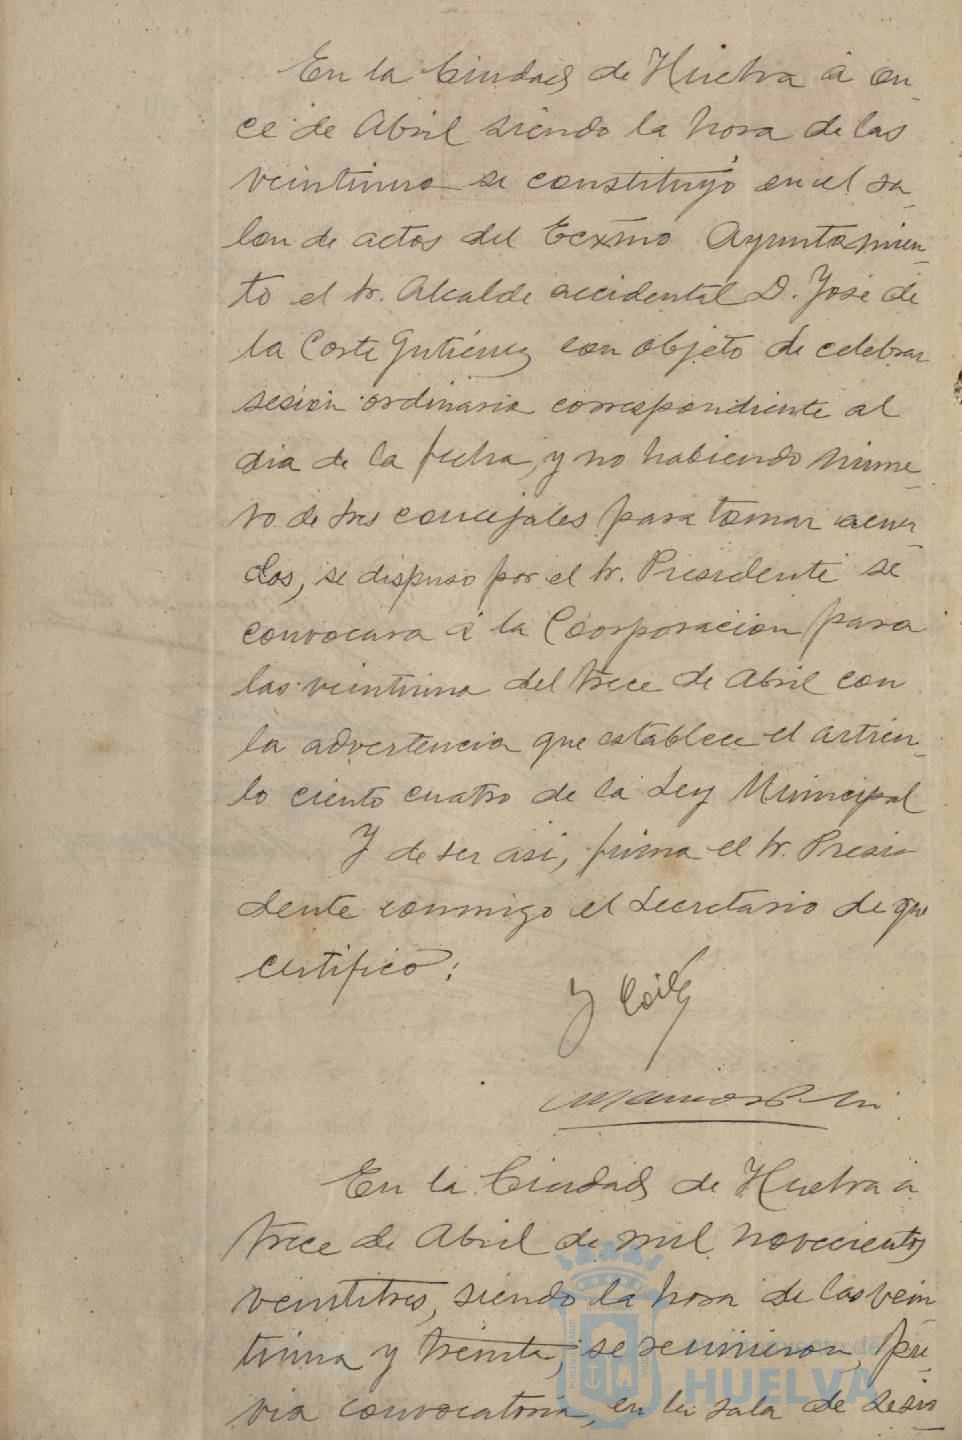 En la Ciudad de Huelva á on-
ce de Abril siendo la hora de las
veintiuna se constituyó en el sa-
lon de actos del Ecxmo Ayuntamien-
to el Sr. Alcalde accidental D. José de
la Corte Gutiérrez con objeto de celebrar
sesión ordinaria correspondiente al
dia de la fecha, y no habiendo núme-
ro de tres concejales para tomar acuer-
dos, se dispuso por el Sr. Presidente se
convocara á la Coorporación para
las veintiuna del trece de Abril con
la advertencia que establece el artícu-
lo ciento cuatro de la Ley Municipal
Y de ser asi, firma el Sr. Presi-
dente conmigo el Secretario de que
certifico:
En la Ciudad de Huelva á
trece de Abril de mil novecientos
veintitres, siendo la hora de las vein
tiuna y treinta, se reunieron, pre-
via convocatoria, en la sala de sesio-
Ayuntamiento de
HUELVA